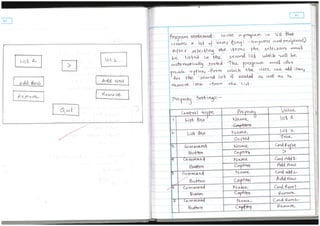 List 2
>
List 2
Add Item
Add Item
Remove
Remove
Quit
Program statement: write a program in VB that
creates a list of items (eng. - engineers and employees).
After selecting the items the selections must
be listed in the second list which will be
automatically sorted. The program must also
provide option from which the user can add items
for the second list if needed as well as to
remove item from the list
Property Settings:-
Control type Property Value
1 List Box Name List 2
Caption
2 List Box Name List 2
Sorted True
3 Command Name CmdRight
Button Caption >
4 Command Name CmdAdd1
Button Caption Add Item
5 Command Name Cmd add 2
Button Caption Add Item
6 Command Name CmdRem1
Button Caption Remove
7 Command Name CmdRem2
Button Caption Remove